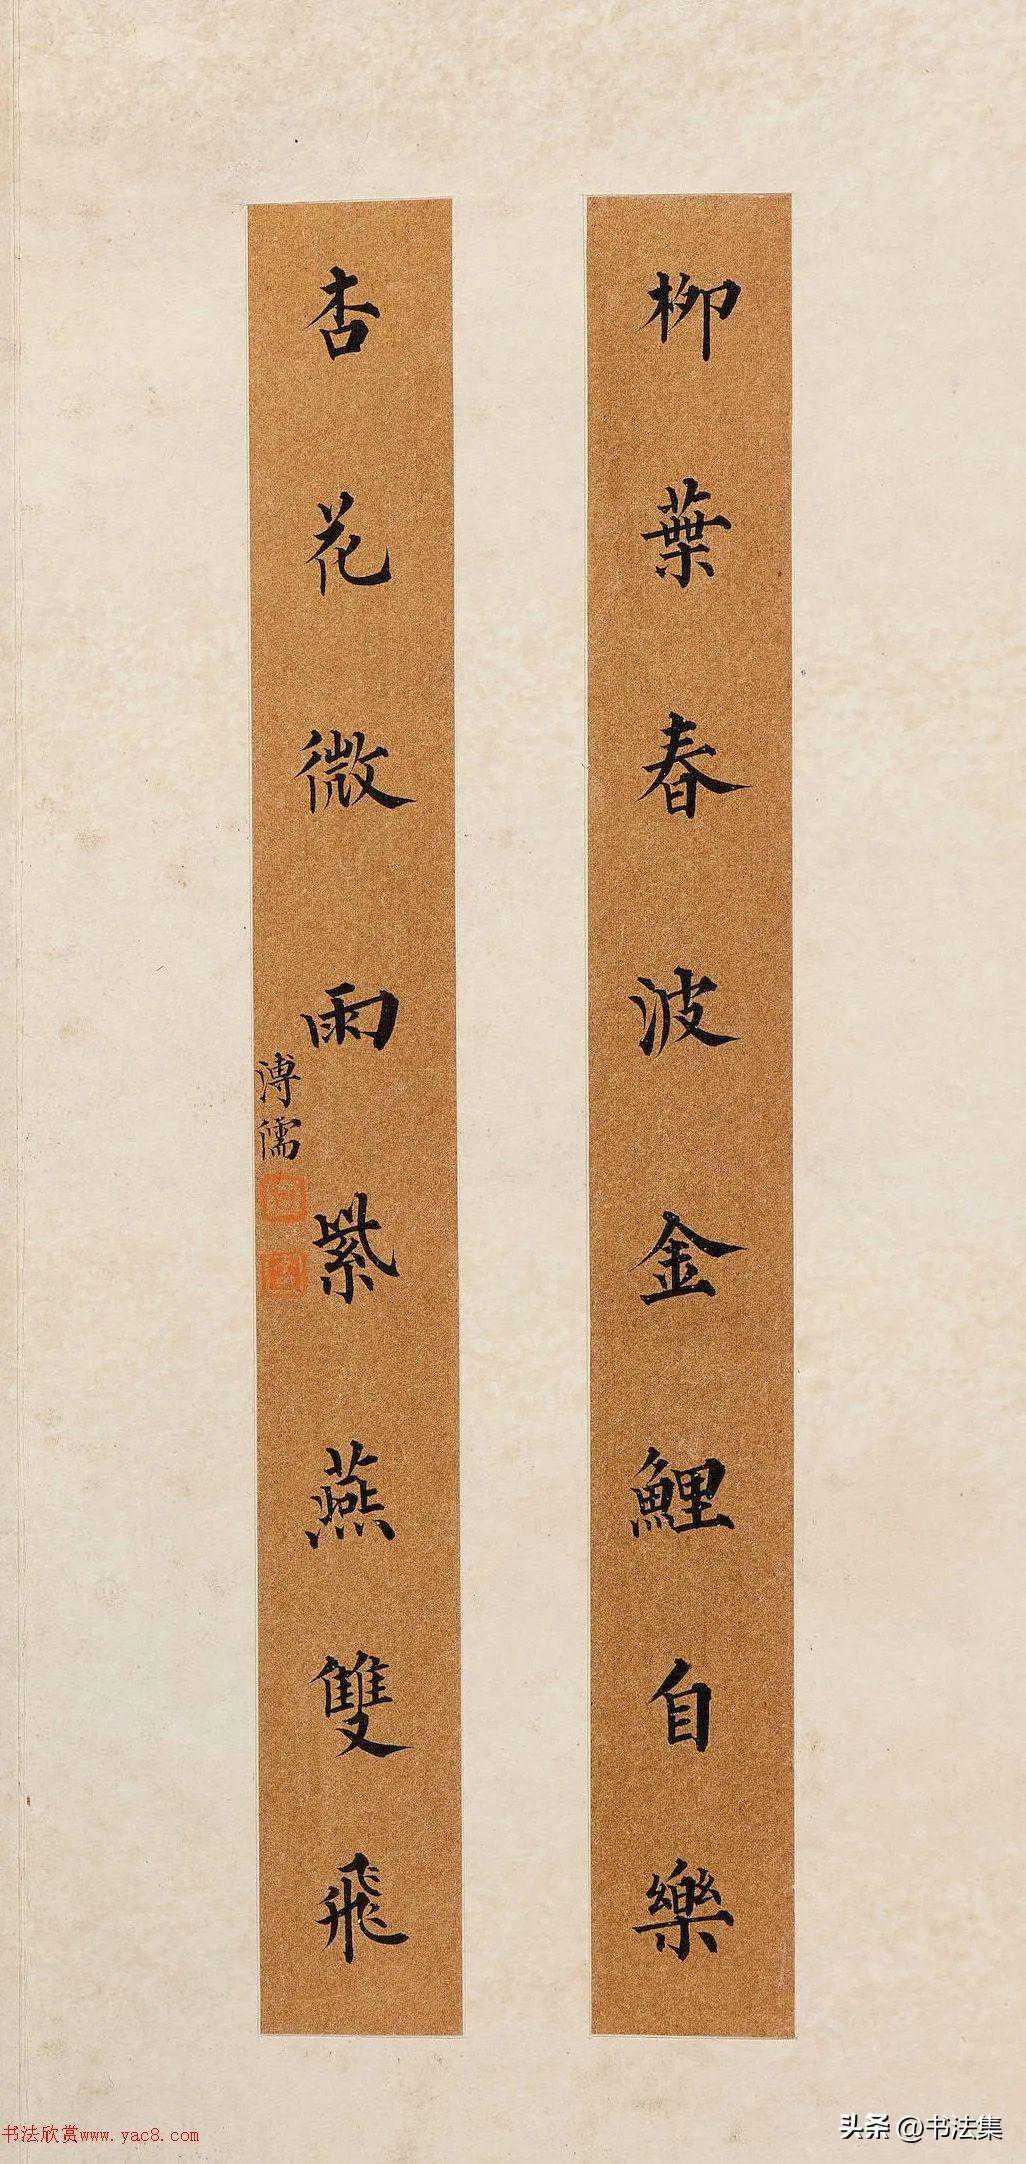 柳葉春波金鯉自樂
杏花微雨紫燕雙飛
溥儒
书法欣赏www.yac8.com
头条 @书法集